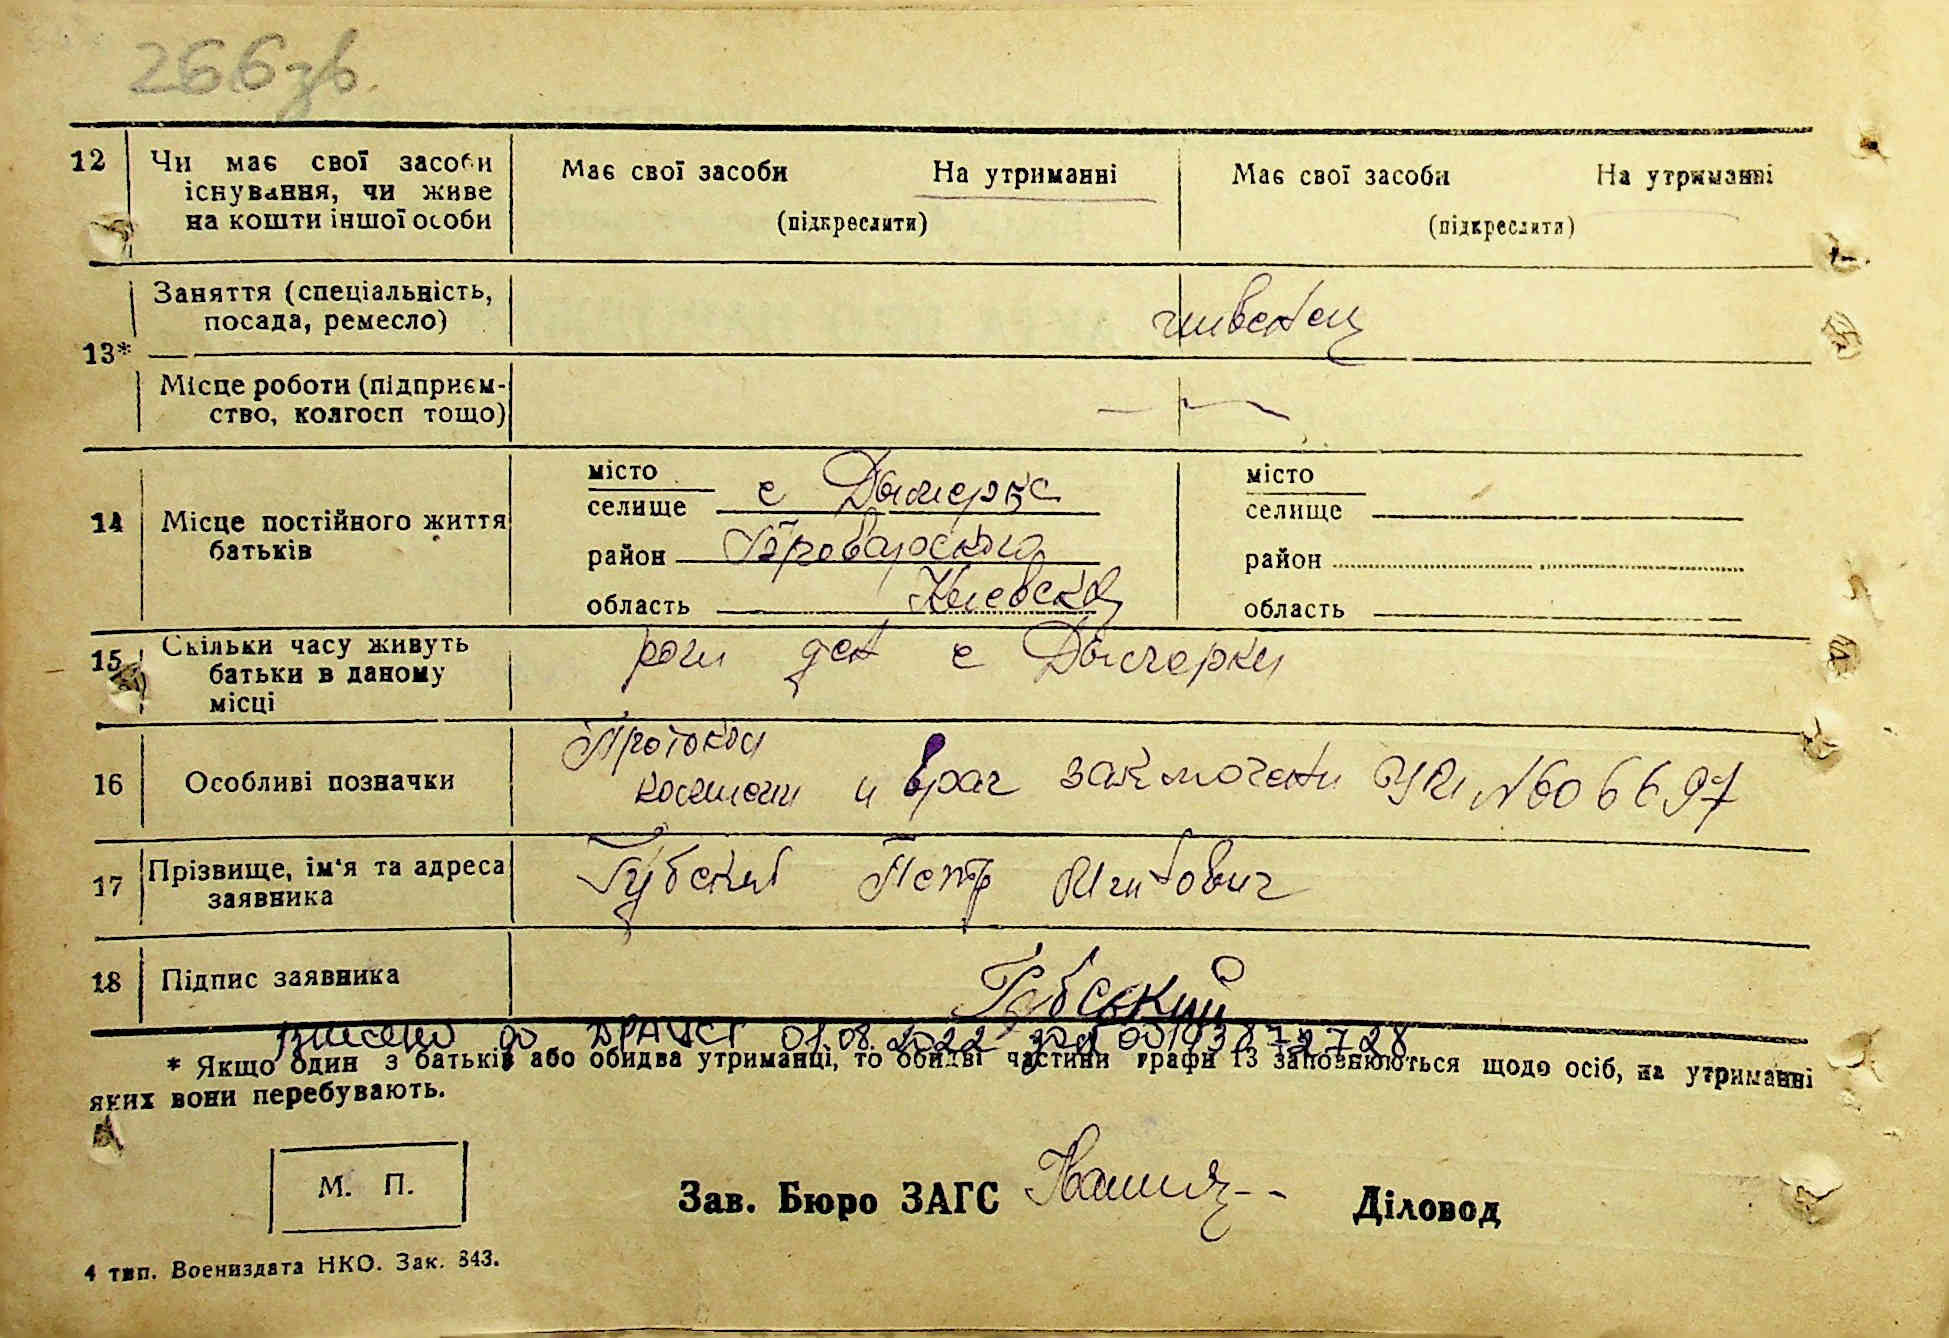 266зв.
12 Чи має свої засоби Має свої засоби На утриманні Має свої засоби На утриманні
існування, чи живе
на кошти іншої особи (підкреслити) (підкреслити)
13* Заняття (спеціальність,
посада, ремесло)
Місце роботи (підприєм-
ство, колгосп тощо)
14 Місце постійного життя
батьків
місто
селище с Дымерка
район Броварского
область Киевская
місто
селище
район
область
15 Скільки часу живуть
батьки в даному
місці
с Дымерки
16 Особливі позначки
Протокол
и врач №606697
17 Прізвище, ім'я та адреса
заявника
Губский Петр
18 Підпис заявника Губський
внесено до ДРАЦСГ 01.08.2022
* Якщо один з батьків або обидва утриманці, то обидві частини графи 13 заповнюються щодо осіб, на утриманні
яких вони перебувають.
М. П.
Зав. Бюро ЗАГС Діловод
4 тип. Воениздата НКО. Зак. 843.